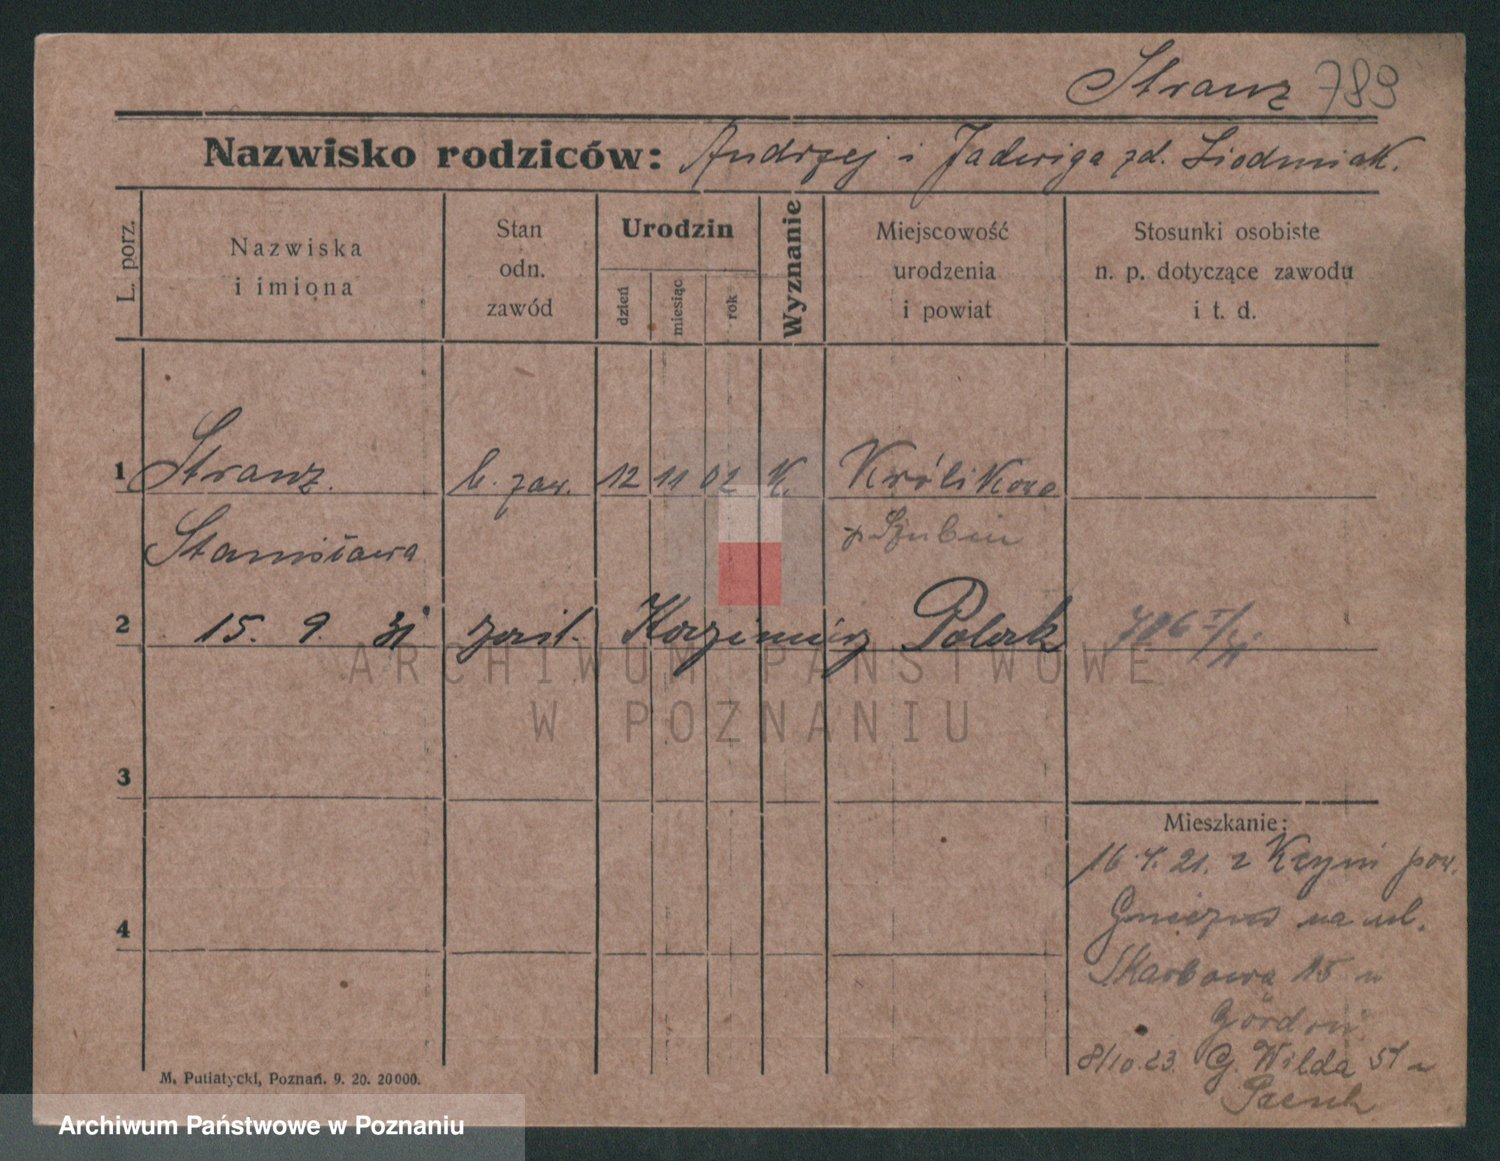 Stranz 789
Nazwisko rodziców: Andrzej i Jadwiga zd.
L. porz.
Nazwiska
i imiona
Stan
odn.
zawód
Urodzin
dzień
miesiąc
rok
Wyznanie
Miejscowość
urodzenia
i powiat
Stosunki osobiste
n. p. dotyczące zawodu
i t. d.
1 Stranz b. zaw. 12 11 02 K. Królikowo
Stanisława p. Szubin
2 15. 9. 31 zaśl. Kazimierz Polak
ARCHIWUM PAŃSTWOWE
W POZNANIU
3
Mieszkanie:
16. 4. 21. z Kcyni pow.
4
Gniezno na ul.
Skarbowa 15 u
8/10.23. G. Wilda 51 u
M. Putiatycki, Poznań. 9. 20. 20000.
Archiwum Państwowe w Poznaniu